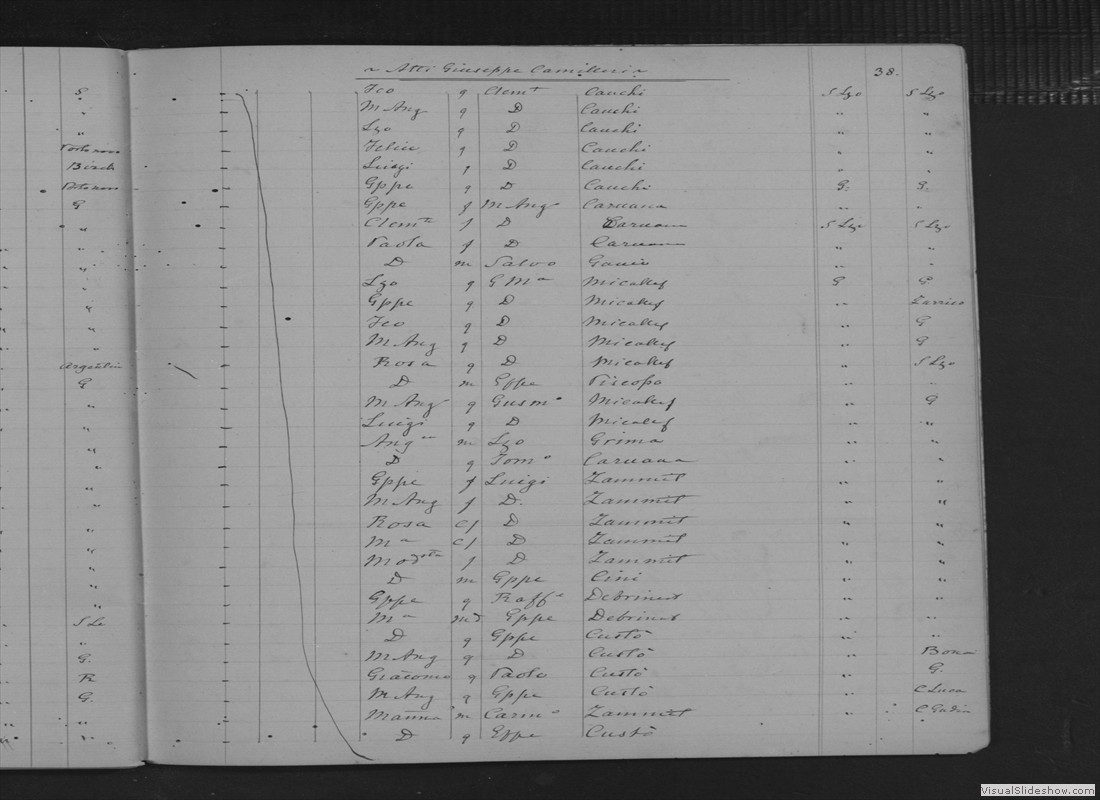 Atti Giuseppe Camilleri 38.
S Fco g Clemte Cauchi S Lzo S Lzo
" M Ang g D Cauchi " "
" Lzo g D Cauchi " "
Portonovo Felice g D Cauchi " "
Luigi f D Cauchi " "
Portonovo Gppe g D Cauchi G. G.
G Gppe f M Ang Caruana " "
" Clemte f D Caruana S Lzo S Lzo
" Paola f D Caruana " "
" D m Salvo Gauci " "
" Lzo g G Ma Micallef G G
" Gppe g D Micallef "
" Fco g D Micallef " G
" M Ang g D Micallef " G
Argentin Rosa g D Micallef " S Lzo
G D m Gppe "
" M Ang g Gusmo Micallef " G
" Luigi g D Micallef " "
" Anga m Lzo Grima " "
" D g Tomo Caruana " "
" Gppe f Luigi Zammit " "
" M Ang f D. Zammit " "
" Rosa cf D Zammit " "
" Ma cf D Zammit " "
" Modsta f D Zammit " "
" D m Gppe Cini " "
" Gppe g Raffe Debrincat " "
S Le Ma md Gppe Debrincat " "
" D g Gppe Custò " "
G. M Ang g D Custò " Bona
R Giacomo g Paolo Custò " G.
G. M Ang g Gppe Custò " C Luca
" m Carmo Zammit "
" D g Gppe Custò
VisualSlideshow.com